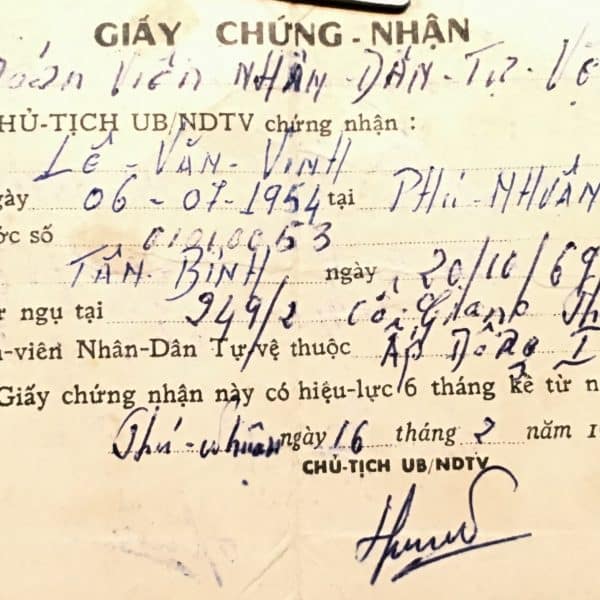 GIẤY CHỨNG-NHẬN
Đoàn Viên NHÂN-DÂN-TỰ-VỆ
HỦ-TỊCH UB/NDTV chứng nhận :
LÊ-VĂN-VINH
gày 06-07-1954 tại PHÚ-NHUẬN
ớc số 01010053
TÂN-BÌNH ngày 20/10/69
ngụ tại 249/2 Cô Giang
-viên Nhân-Dân Tự-vệ thuộc Ấp Đông I
Giấy chứng nhận này có hiệu-lực 6 tháng kể từ n
Phú-nhuận ngày 16 tháng 2 năm 1
CHỦ-TỊCH UB/NDTV